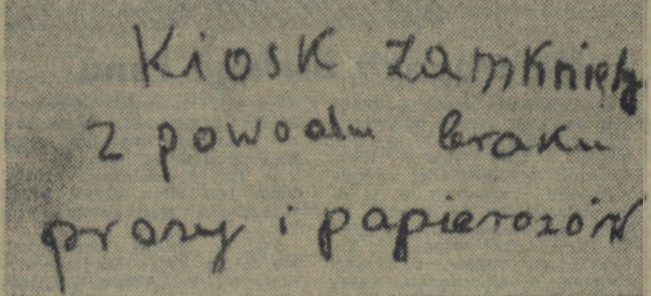 Kiosk zamknięty
z powodu braku
prasy i papierosów